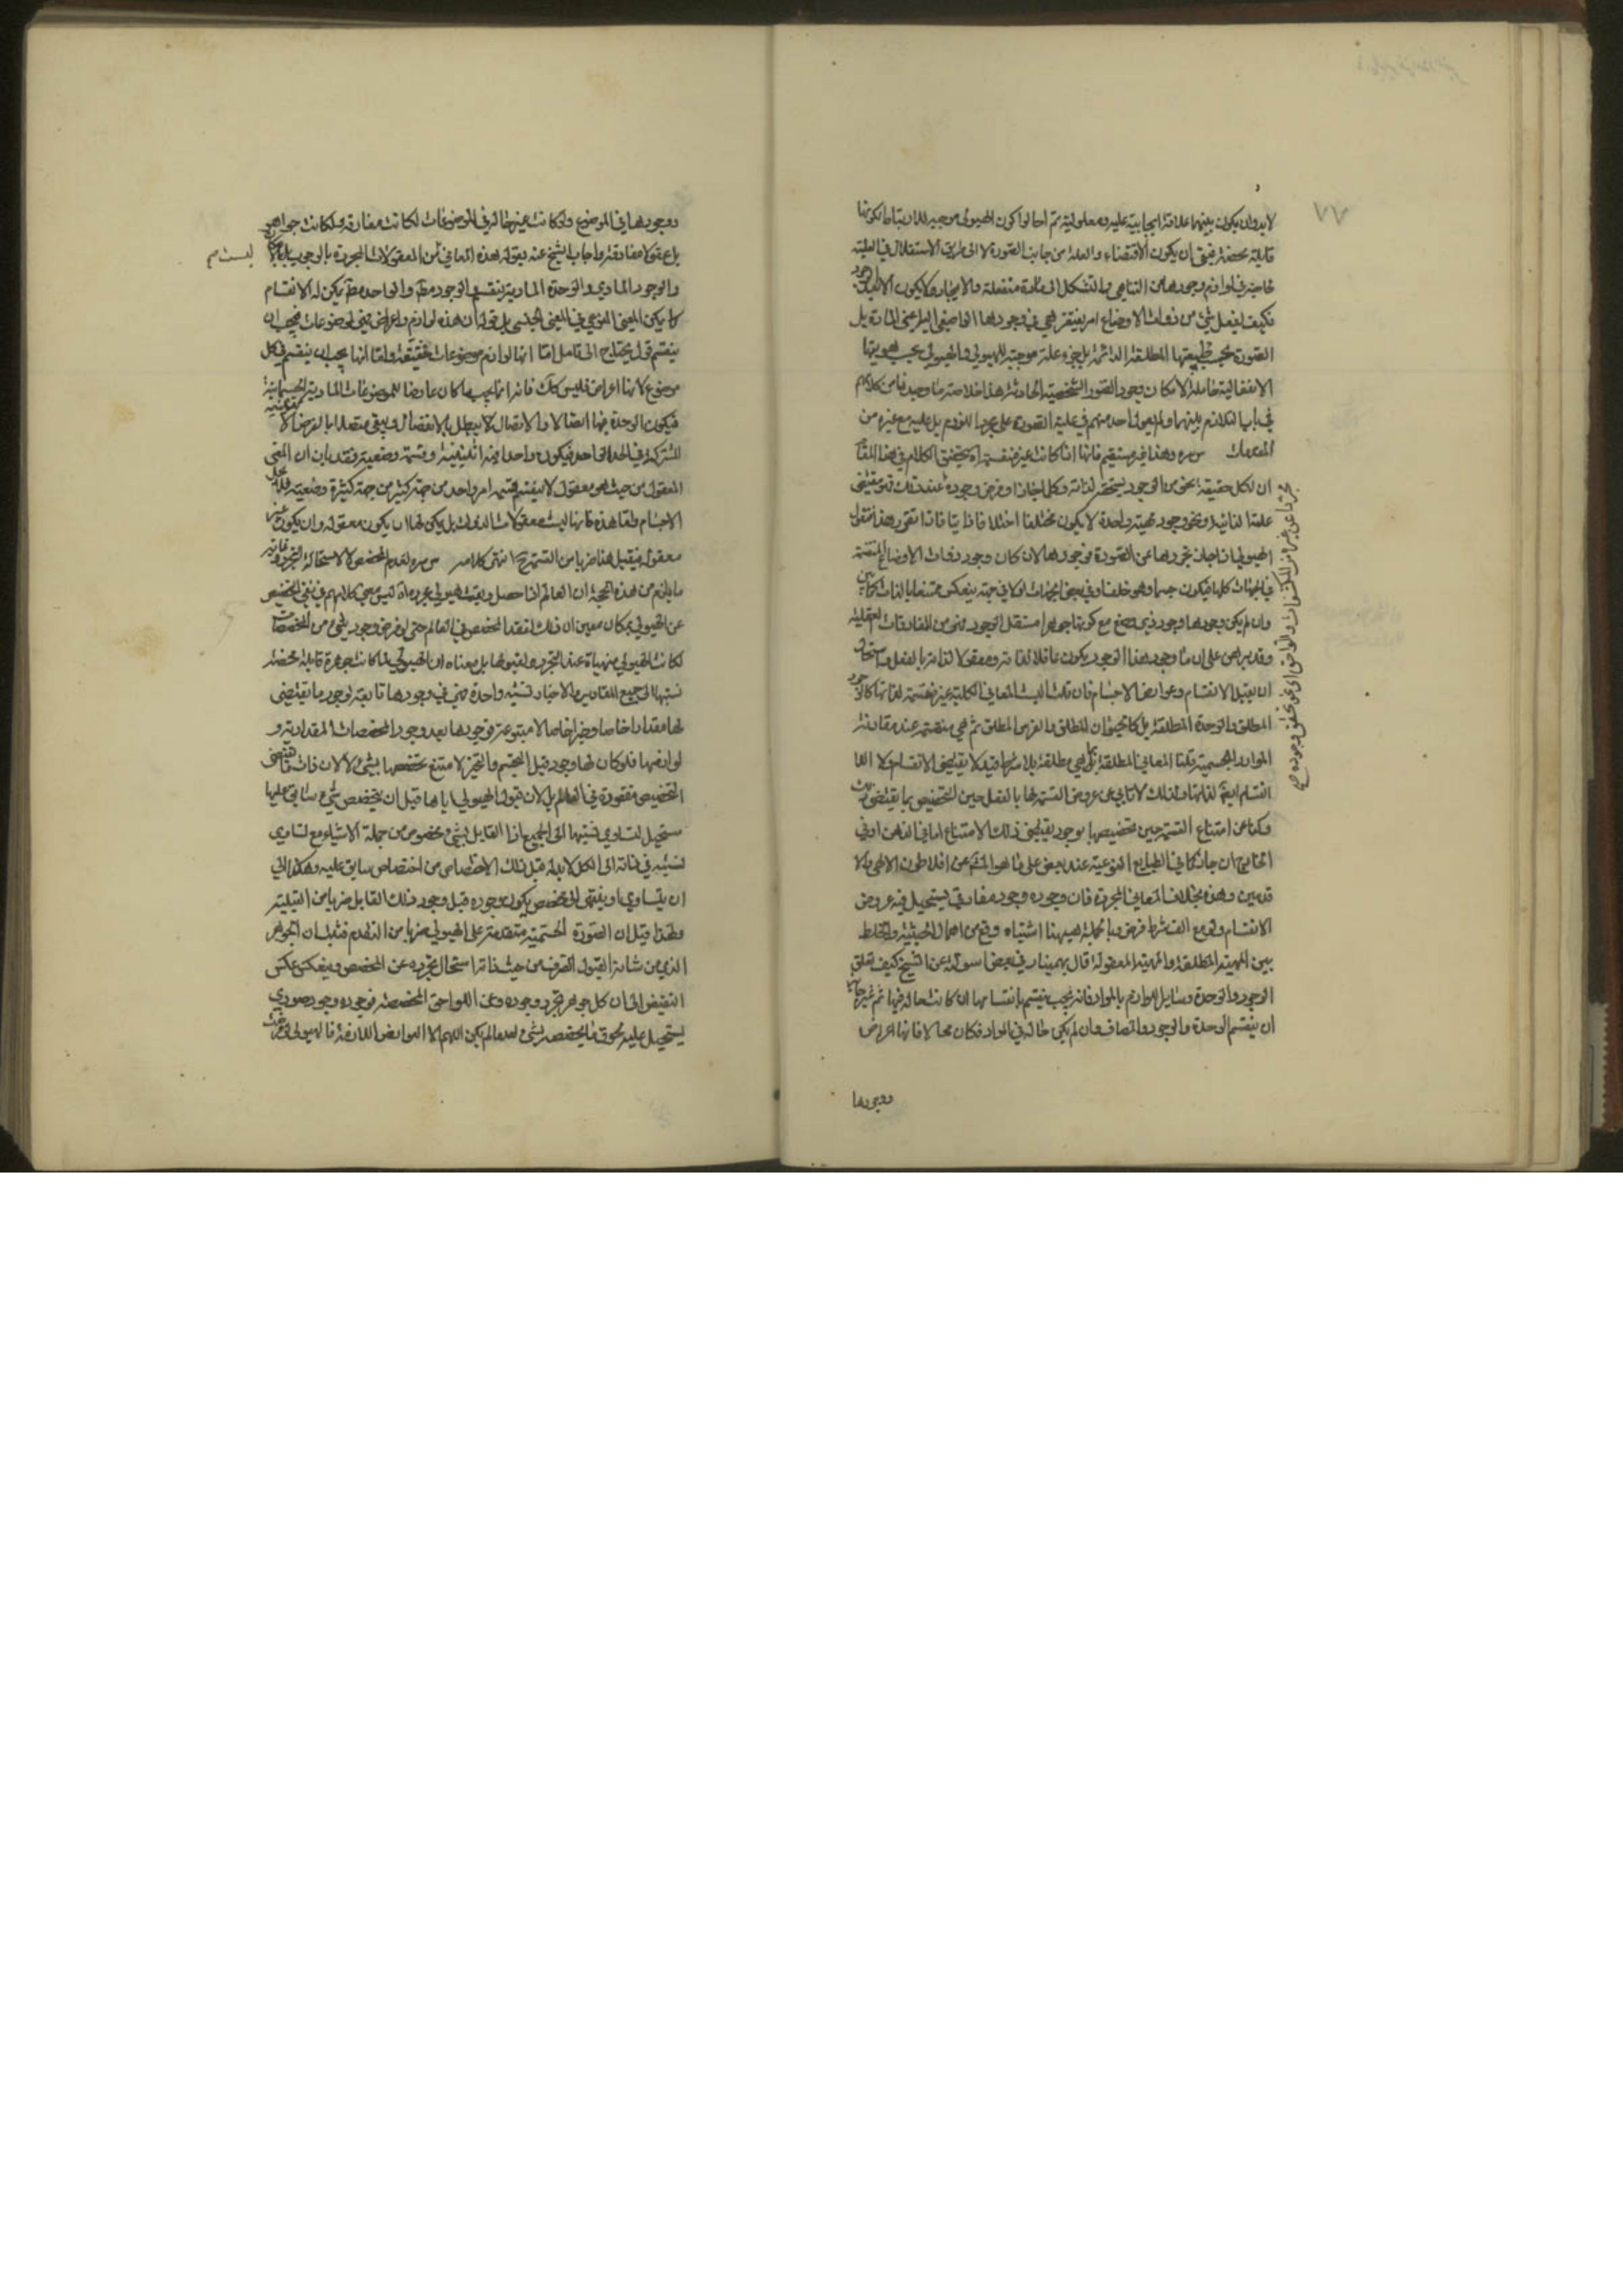 ٧٧
لابد وان يكون بينهما علاقة ايجابية علية ومعلولية ثم احالوا كون الهيولى موجبة
قابلة محضة فبقى ان يكون الاقتضاء والعلية من جانب الصورة لا على طريق الاستقلال في العلية
لحاجتها في لوازم وجودها من التناهى والتشكل الى مادة منفعلة
فكيف يفعل شئ من ذوات الاوضاع امرا يفتقر هي في وجودها الخاص اليه اعنى المادة بل
الصورة بحسب طبيعتها المطلقة الدائمة جزء علة موجبة للهيولى والهيولى بحسب هويتها
الانفعالية حاملة لامكان وجود الصور الشخصية الحادثة هذا خلاصة ما وجدنا من كلامهم
في باب التلازم بينهما ولم يعول احد منهم في علية الصورة على مجرد اللزوم بل عليه مع غيره من
المقدمات
ان لكل حقيقة نحو من الوجود يستحقه لذاته وكلما جاز او فرض وجوده عند ذلك فهو مقتضى
علته الذاتية ونحو وجود مهية واحدة لا يكون مختلفا اختلافا ذاتيا فاذا تقرر هذا فنقول
الهيولى ان جاز تجردها عن الصورة فوجودها لان كان وجود ذوات الاوضاع المنقسمة
في الجهات كلها فيكون جسما وهو خلف او في بعض الجهات اولا في جهة
وان لم يكن وجودها وجود ذي وضع مع كونها جوهرا مستقل الوجود فهي من المفارقات العقلية
وقد برهن على ان ما وجوده هذا الوجود يكون عاقلا لذاته ومعقولا لذاته بالفعل فاستحال
ان يقبل الانقسام وعوارض الاجسام فان قلت اليست المعاني الكلية غير منقسمة لذاتها كالوجود
المطلق والوحدة المطلقة بل كالحيوان المطلق والفرس المطلق ثم هي منقسمة عند مقارنة
المواد الجسمية قلنا المعاني المطلقة بما هي مطلقة بلا شرط قيد لا يقتضى الانقسام ولا اللا
انقسام ايضا لذاتها ولذلك لا تأبى عن عروض القسمة لها بالفعل حين التخصيص بما يقتضى ذلك
وكذا عن امتناع القسمة حين تخصيصها بوجود يقتضى ذلك الامتناع اما في الذهن او في
الخارج ان جاز كما في الطبايع النوعية عند بعض على ما هو المشهور عن افلاطون الالهى والا
قدمين وهذه بخلاف المعاني المجردة فان وجوده وجود مفارقى يستحيل فيه عروض
الانقسام ولو مع الف شرط فرض وبالجملة هيهنا اشتباه وقع من اهمال الحيثية والخلط
بين المهية المطلقة والمهية المعقولة قال بهمنيار في بعض اسولته عن الشيخ كيف تعلق
الوجود والوحدة وساير اللوازم بالمواد فانه يجب ينقسم بانقسامها ان كانت حالة فيها ثم غير جايز
ان ينقسم الوحدة والوجود والمضاف وان لم يكن حالة في المواد فكان محالا فانها اعراض
ووجودها
ووجودها في الموضوع ولو كانت غير حالة في الموضوعات لكانت مفارقة ولكانت جواهر
بل عقولا مفارقة واجاب الشيخ عنه بقوله هذه المعاني من المعقولات المجردة بالوجوب بل
ليست م
والوجود المادي والوحدة المادية ينقسم والوجود مطلقا والواحد مطلقا يمكن له الانقسام
كما يمكن المعنى النوعي في المعنى الجنسى بل قوله ان هذه لوازم واعراض فهي في موضوعات فيجب ان
ينقسم قول يحتاج الى تامل اما انها لوازم موضوعات فحقيقة واما انها يجب ان ينقسم في كل
موضوع لانها اعراض فليس كذلك فانه انما يجب ما كان عارضا للموضوعات المادية الجسمانية
فيكون الوحدة فيها اتصالا والاتصال لا يبطل بالانفصال ويبقى متصلا بالفرض الا
المشترك في الحد الواحد فيكون واحدا فيه اثنينية وقسمة وضعية فقد بان ان المعنى
المعقول من حيث هو معقول لا ينقسم قسمة امر واحد من جهة كثير من جهة كثرة وضعية
الاجسام واما هذه فانها ليست معقولات الذوات بل يمكن لها ان يكون معقولة وان يكون غير
معقولة فيقبل هذا ضربا من القسمة انتهى كلامه
ما يلزم من هذه الحجة ان العالم اذا حصل وبقيت هيولى مجردة ليس معنى كلامهم في نفى التخصيص
عن الهيولى بمكان معين ان ذلك لفقد المخصص في العالم حتى لو فرض وجود شئ من المخصصات
لكانت الهيولى متهيأة عند التجرد لقبولها بل معناه ان الهيولى لما كانت جوهرة قابلة محضة
نسبتها الى جميع المقادير والاحياز نسبة واحدة فهي في وجودها تابعة لوجود ما يقتضى
لها مقدارا خاصا وحيزا خاصا لا متبوعة فوجودها بعد وجود المخصصات المقدارية و
لوازمها فلو كان لها وجود قبل التجسم والتحيز لامتنع تخصصها بشئ لا لان ذات مقتضى
التخصيص مفقودة في العالم بل لان قبول الهيولى اياها قبل ان يخصص شئ سابق عليها
مستحيل لتساوى نسبتها الى الجميع اذ القابل لشئ مخصوص من جملة الاشياء مع تساوى
نسبته في ذاته الى الكل لابد له قبل ذلك الاختصاص من اختصاص سابق عليه وهكذا الى
ان يتساوى او ينتهى الى مخصص يكون وجوده قبل وجود ذلك القابل ضربا من القبلية
ولهذا قيل ان الصورة الجسمية متقدمة على الهيولى ضربا من التقدم فثبت ان الجوهر
الذي من شانه القبول الصرف من حيث ذاته استحال تجرده عن المخصص وينعكس عكس
النقيض الى ان كل جوهر تجرد وجوده عن اللواحق المخصصة فوجوده وجود صوري
يستحيل عليه لحوق ما يخصصه بشئ بعد ما لم يكن اللهم الا العوارض اللازمة فالهيولى لو